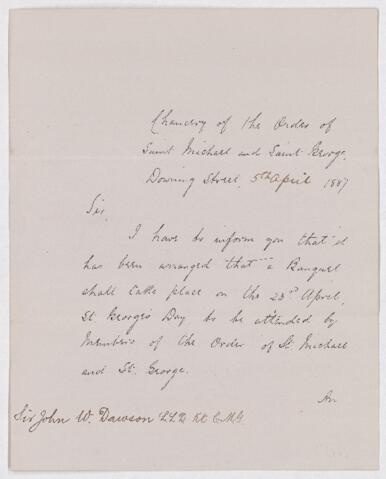 Chancery of the Order of
Saint Michael and Saint George,
Downing Street, 5th April 1887
Sir,
I have to inform you that it
has been arranged that a Banquet
shall take place on the 23rd April,
St. George's Day, to be attended by
Members of the Order of St. Michael
and St. George.
An
Sir John W. Dawson LL.D. Kt. C.M.G.